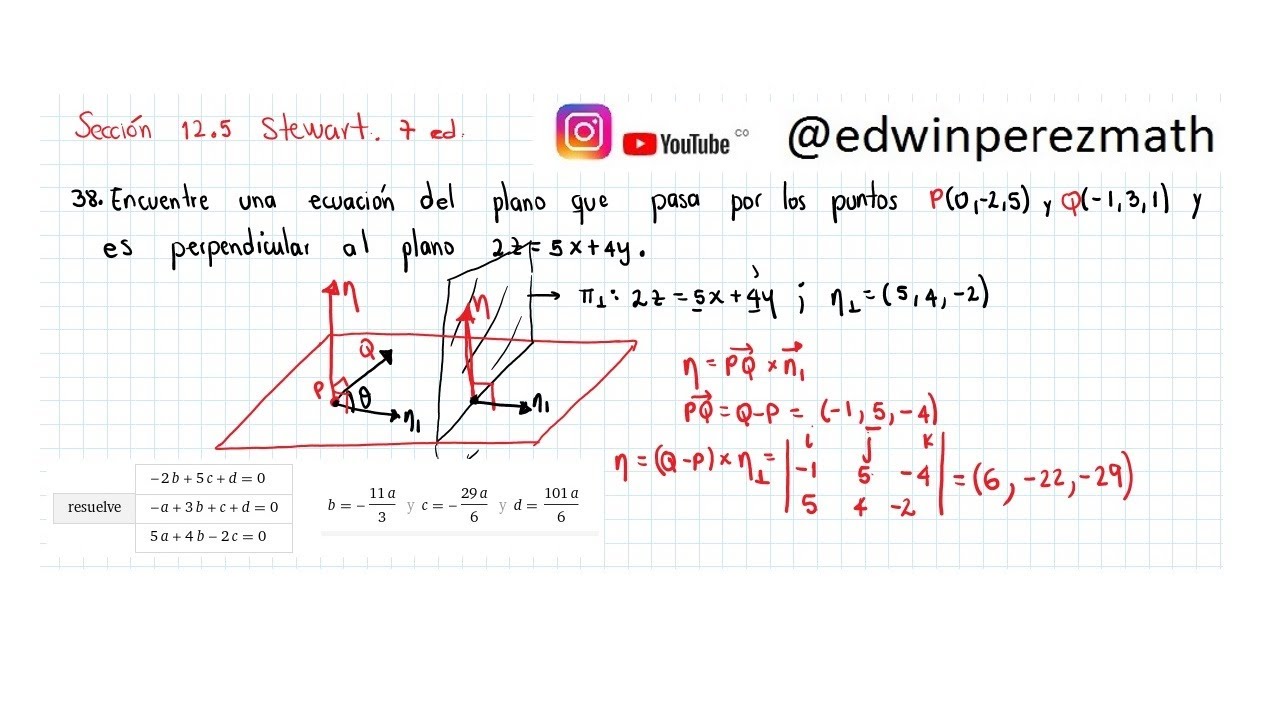 Sección 12.5 Stewart. 7 ed.
YouTube CO
@edwinperezmath
38. Encuentre una ecuación del plano que pasa por los puntos P(0,-2,5) y Q(-1,3,1) y
es perpendicular al plano 2z = 5x+4y.
→ π⊥: 2z = 5x + 4y ; η⊥ = (5, 4, -2)
η
η
Q
P
θ
η₁
η₁
η = PQ × η₁
PQ = Q-P = (-1, 5, -4)
i j k
η = (Q-P) × η⊥ = | -1 5 -4 | = (6, -22, -29)
5 4 -2
resuelve
−2b + 5c + d = 0
−a + 3b + c + d = 0
5a + 4b − 2c = 0
b = − 11a/3 y c = − 29a/6 y d = 101a/6